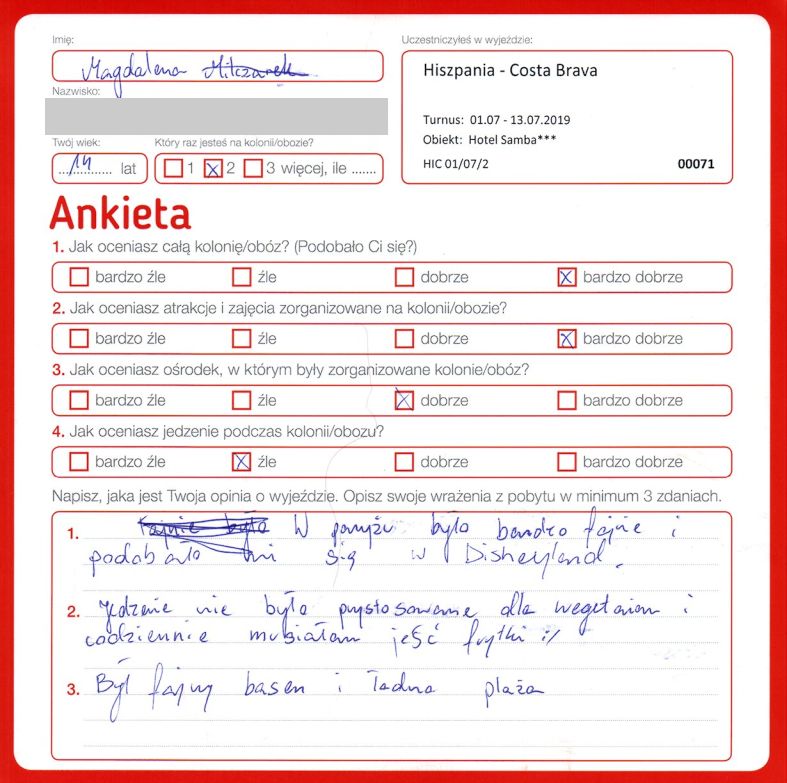 Imię:
Magdalena Milczarek
Nazwisko:
Twój wiek:
14 lat
Który raz jesteś na kolonii/obozie?
1 x 2 3 więcej, ile .......
Uczestniczyłeś w wyjeździe:
Hiszpania - Costa Brava
Turnus: 01.07 - 13.07.2019
Obiekt: Hotel Samba***
HIC 01/07/2 00071
Ankieta
1. Jak oceniasz całą kolonię/obóz? (Podobało Ci się?)
bardzo źle źle dobrze x bardzo dobrze
2. Jak oceniasz atrakcje i zajęcia zorganizowane na kolonii/obozie?
bardzo źle źle dobrze x bardzo dobrze
3. Jak oceniasz ośrodek, w którym były zorganizowane kolonie/obóz?
bardzo źle źle x dobrze bardzo dobrze
4. Jak oceniasz jedzenie podczas kolonii/obozu?
bardzo źle x źle dobrze bardzo dobrze
Napisz, jaka jest Twoja opinia o wyjeździe. Opisz swoje wrażenia z pobytu w minimum 3 zdaniach.
1. Fajnie było W paryżu było bardzo fajnie i
podobało mi się w Disneyland.
2. Jedzenie nie było przystosowane dla wegetarian i
codziennie musiałam jeść frytki :/
3. Był fajny basen i ładna plaża